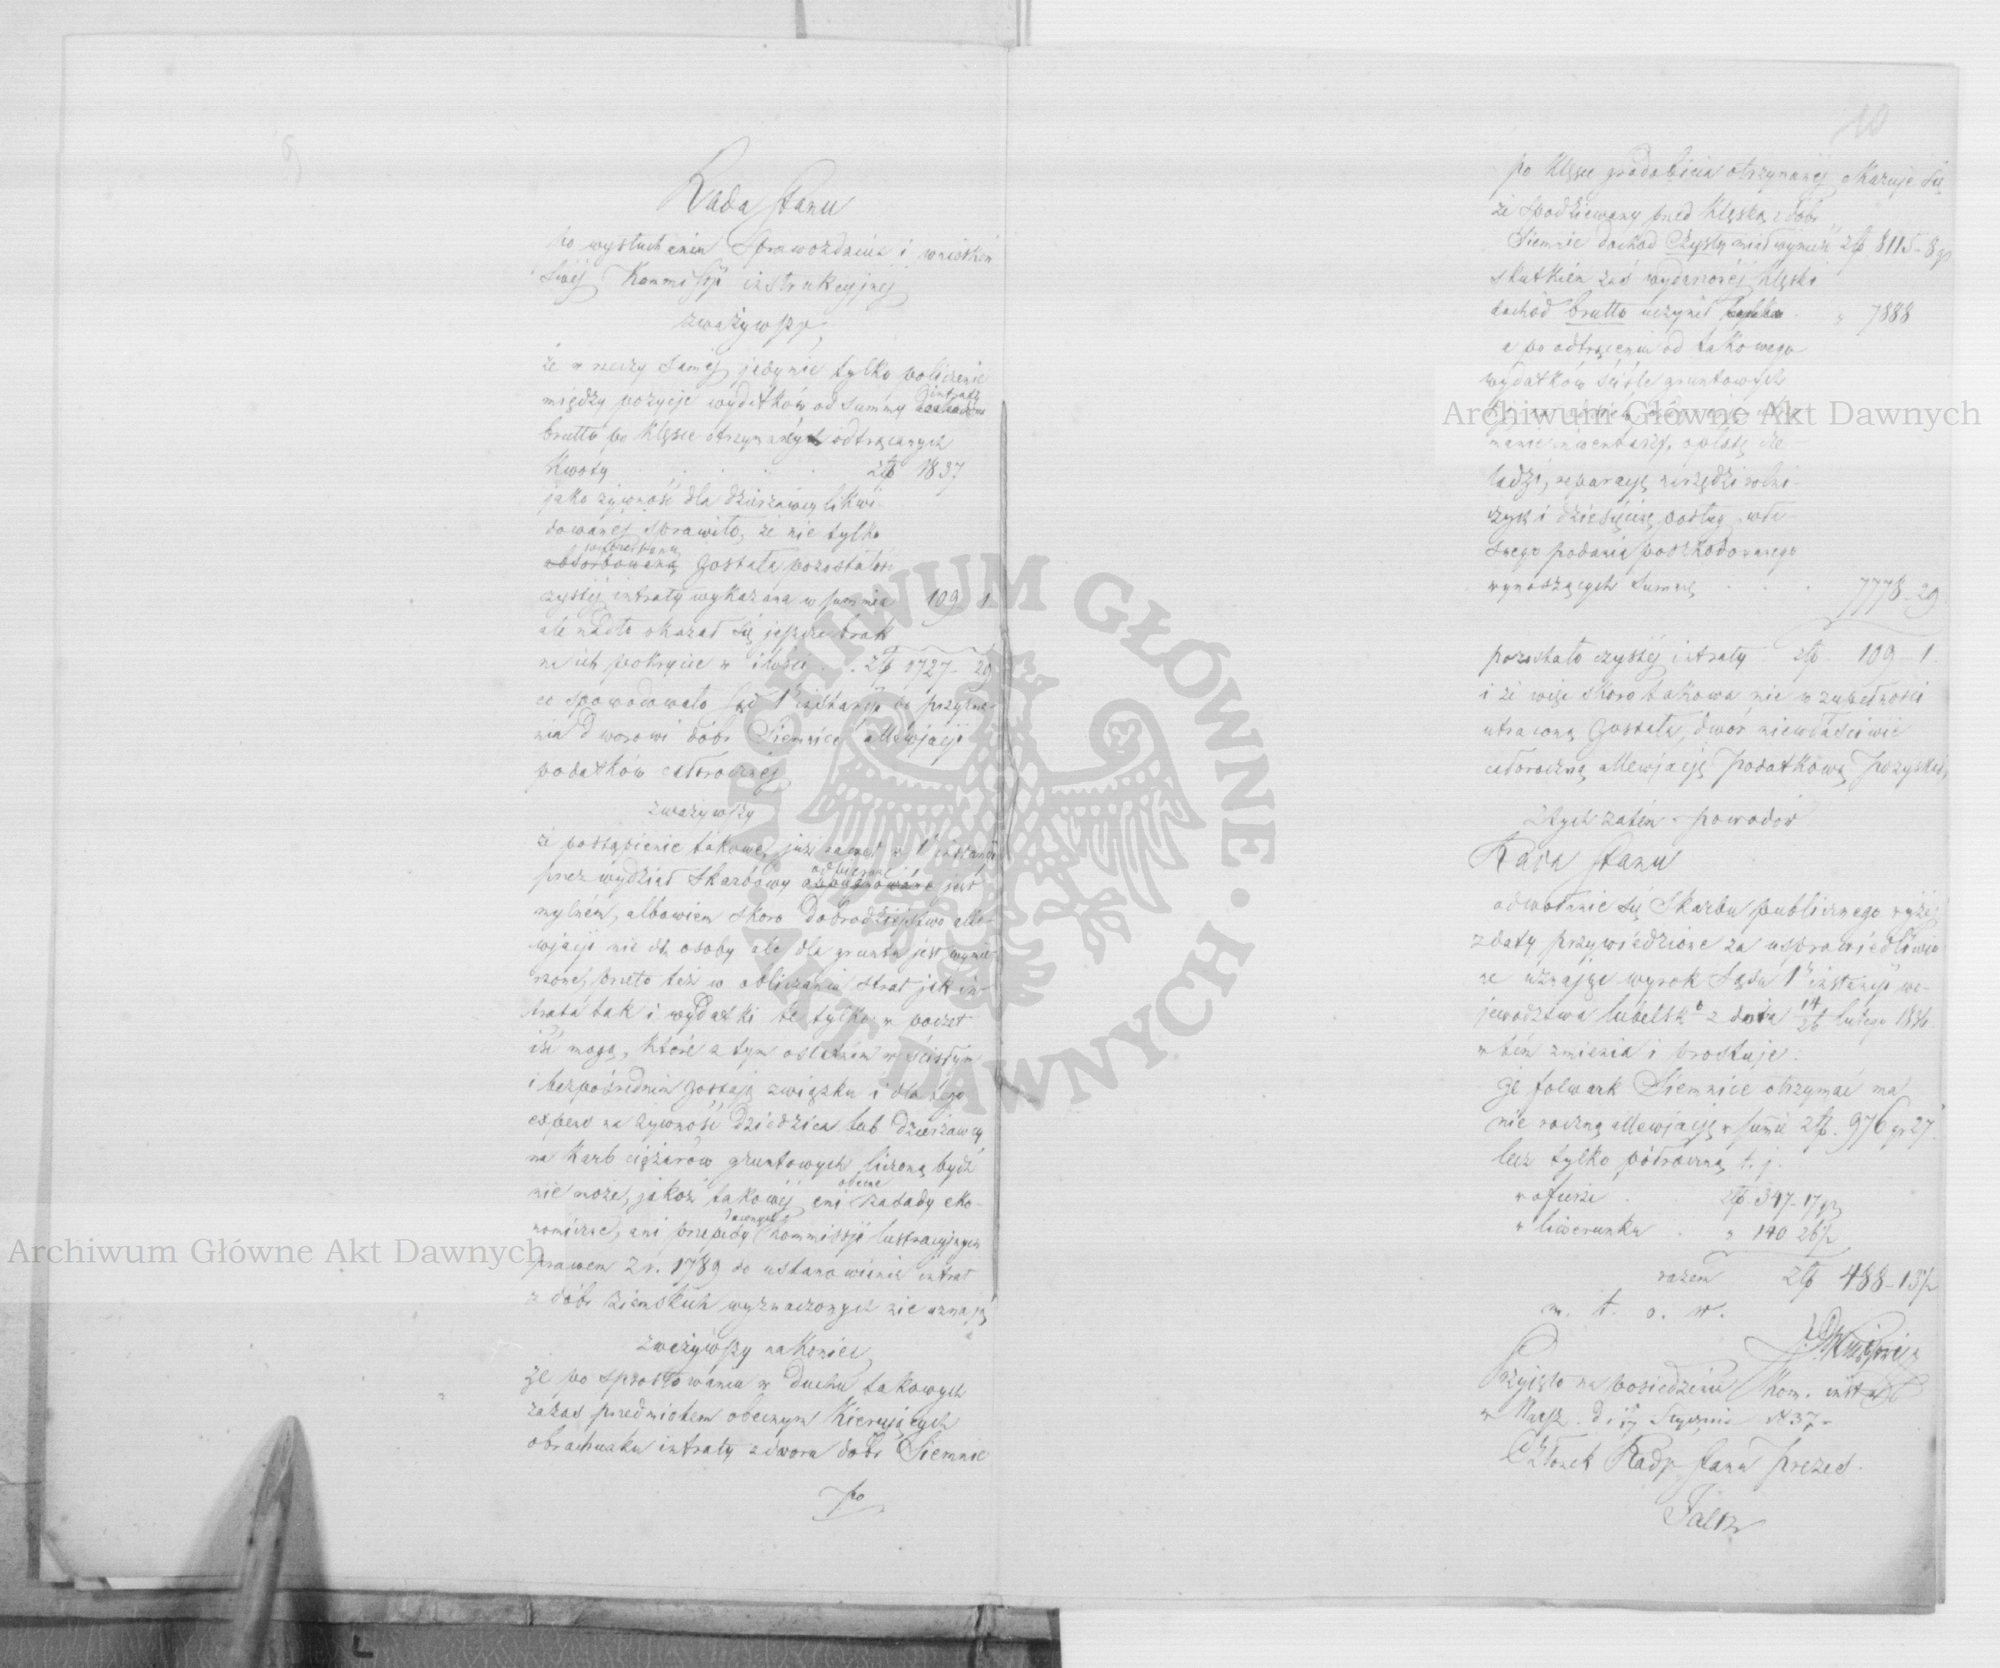 Rada Stanu
po wysłuchaniu Sprawozdania i wniosków
swéj Kommissyi instrukcyjnéj
zważywszy
że w rzeczy saméj jedynie tylko policzenie
między pozycje wydatków od summy intraty
brutto po klęsce otrzymanéj odtrącanych
kwoty . . . . . złp 1837
jako żywność dla dzierżawcy likwi-
dowanéj sprawiło, że nie tylko
została pozostałość
czystéj intraty wykazana w summie 109 1
ale nadto okazał się jeszcze brak
na ich pokrycie w ilości . . złp 1727 - 29
co spowodowało Sąd 1éj instancji do przyzna-
nia dworowi dóbr Siemnice allewjacji
podatków całorocznéj
zważywszy
że postąpienie takowe, już nawet w 1 instancji
przez wydział skarbowy odpierane jest
mylném, albowiem skoro dobrodziejstwo alle-
wjacji nie dla osoby ale dla gruntu jest wymie-
rzone, przeto też w obliczaniu strat jak in-
trata tak i wydatki te tylko w poczet
iść mogą, które z tym ostatnim w ścisłym
i bezpośrednim zostają związku i dla tego
expens na żywność dziedzica lub dzierżawcy
na karb ciężarów gruntowych liczoną bydź
nie może, jakoż takowéj ani obecne zasady eko-
nomiczne, ani przepisy dawnych kommissji lustracyjnych
prawem z r. 1789 do ustanowienia intrat
z dóbr ziemskich wyznaczonych nie uznają
zważywszy nakoniec
że po sprostowaniu w duchu takowych
zasad przedmiotem obecnym kierujących
obrachunku intraty z dworu dóbr Siemnic
po
10
po klęsce gradobicia otrzymanéj okazuje się
że spodziewany przed klęską z dóbr
Siemnic dochod czysty miał wynieść złp 8115 - 8 gr
skutkiem zaś wydarzonéj klęski
dochód brutto uczynił . " 7888
a po odtrąceniu od takowego
wydatków ściśle gruntowych
manie inwentarzy, opłatę cze-
ladzi, reparację narzędzi rolni-
czych i dziesięcinę podług wła-
snego podania poszkodowanego
wynoszących summę . . . 7778 - 29
pozostało czystéj intraty złp. 109 - 1.
i że więc skoro takowa nie w zupełności
utraconą została, dwór niewłaściwie
całoroczną allewjację podatkową pozyskał,
Z tych zatém powodów
Rada Stanu
odwołanie się Skarbu publicznego wyżéj
z daty przywiedzione za usprawiedliwio-
ne uznając wyrok Sądu 1éj instancji wo-
jewództwa lubelskgo z dnia 14/26 lutego 1836
w tém zmienia i prostuje:
że folwark Siemnice otrzymać ma
nie roczną allewjację w summie złp. 976 gr 27.
lecz tylko półroczną t. j.
w ofierze . złp 347 - 17 gr
w liwerunku . " 140 26½
razem złp 488 - 13½
m. t. o. w.
Przyjęto na posiedzeniu Kom. instr
w Warsz. d. 17 Stycznia 1837 r
Członek Rady Stanu Prezes
Falz
Archiwum Główne Akt Dawnych
Archiwum Główne Akt Dawnych
ARCHIWUM GŁÓWNE AKT DAWNYCH